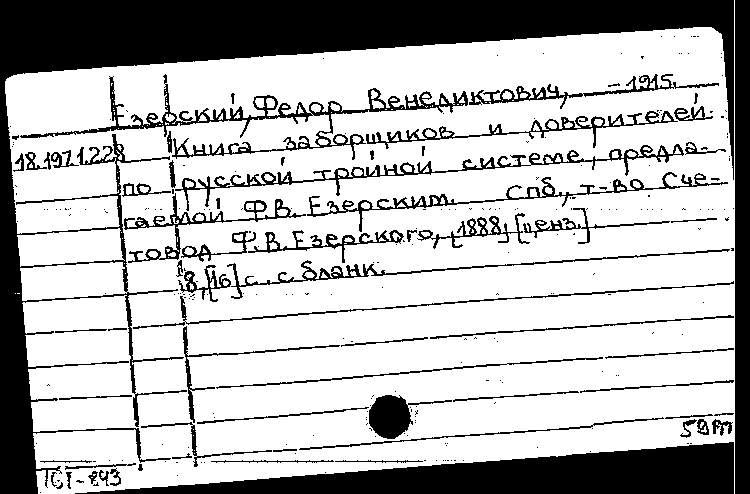 Езерский, Федор Венедиктович, – 1915.
18.197.1.228 Книга заборщиков и доверителей
по русской тройной системе, предла-
гаемой Ф.В. Езерским. Спб., т-во Сче-
товод Ф.В. Езерского, [1888, [ценз.].
8, [16] с. с бланк.